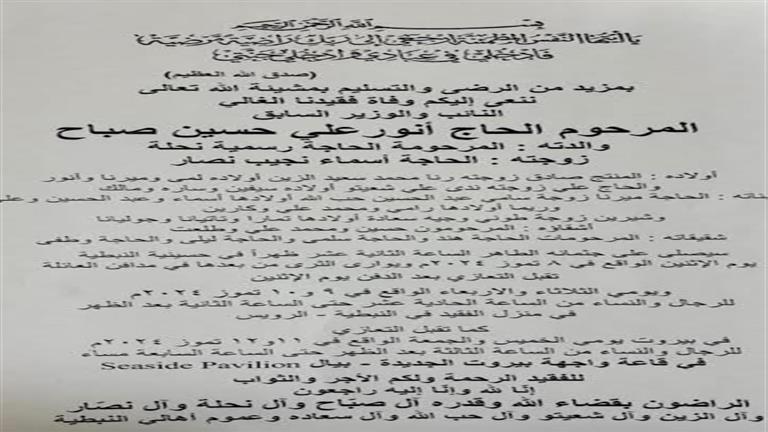 بسم الله الرحمن الرحيم
يا أيتها النفس المطمئنة ارجعي إلى ربك راضية مرضية
فادخلي في عبادي وادخلي جنتي
(صدق الله العظيم)
بمزيد من الرضى والتسليم بمشيئة الله تعالى
ننعى إليكم وفاة فقيدنا الغالي
النائب والوزير السابق
المرحوم الحاج أنور علي حسين صباح
والدته : المرحومة الحاجة رسمية نحلة
زوجته : الحاجة أسماء نجيب نصار
أولاده : المنتج صادق زوجته رنا محمد سعيد الزين أولاده لمى وميرنا وأنور
والحاج علي زوجته ندى علي شعيتو أولاده سيفين وساره ومالك
بناته : الحاجة ميرنا زوجة عبد الحسين حب الله أولادها أسماء وعبد الحسين وعلي
وريما أولادها رامي ومحمد علي وكارين
وشيرين زوجة طوني وجيه سعادة أولادها تمارا وتاتيانا وجوليانا
أشقاؤه : المرحومون حسين ومحمد علي وطلعت
شقيقاته : المرحومات الحاجة هند والحاجة سلمى والحاجة ليلى والحاجة وطفى
سيصلى على جثمانه الطاهر الساعة الثانية عشر ظهراً في حسينية النبطية
يوم الإثنين الواقع في ٨ تموز ٢٠٢٤ ويوارى الثرى من بعدها في مدافن العائلة
تقبل التعازي بعد الدفن يوم الإثنين
ويومي الثلاثاء والاربعاء الواقع في ٩ و ١٠ تموز ٢٠٢٤م
للرجال والنساء من الساعة الحادية عشر حتى الساعة الثانية بعد الظهر
في منزل الفقيد في النبطية - الرويس
كما تقبل التعازي
في بيروت يومي الخميس والجمعة الواقع في ١١و١٢ تموز ٢٠٢٤م
للرجال والنساء من الساعة الثالثة بعد الظهر حتى الساعة السابعة مساء
في قاعة واجهة بيروت الجديدة - بيال Seaside Pavilion
للفقيد الرحمة ولكم الأجر والثواب
إنا لله وإنا إليه راجعون
الراضون بقضاء الله وقدره آل صباح وآل نحلة وآل نصار
وآل الزين وآل شعيتو وآل حب الله وآل سعاده وعموم أهالي النبطية